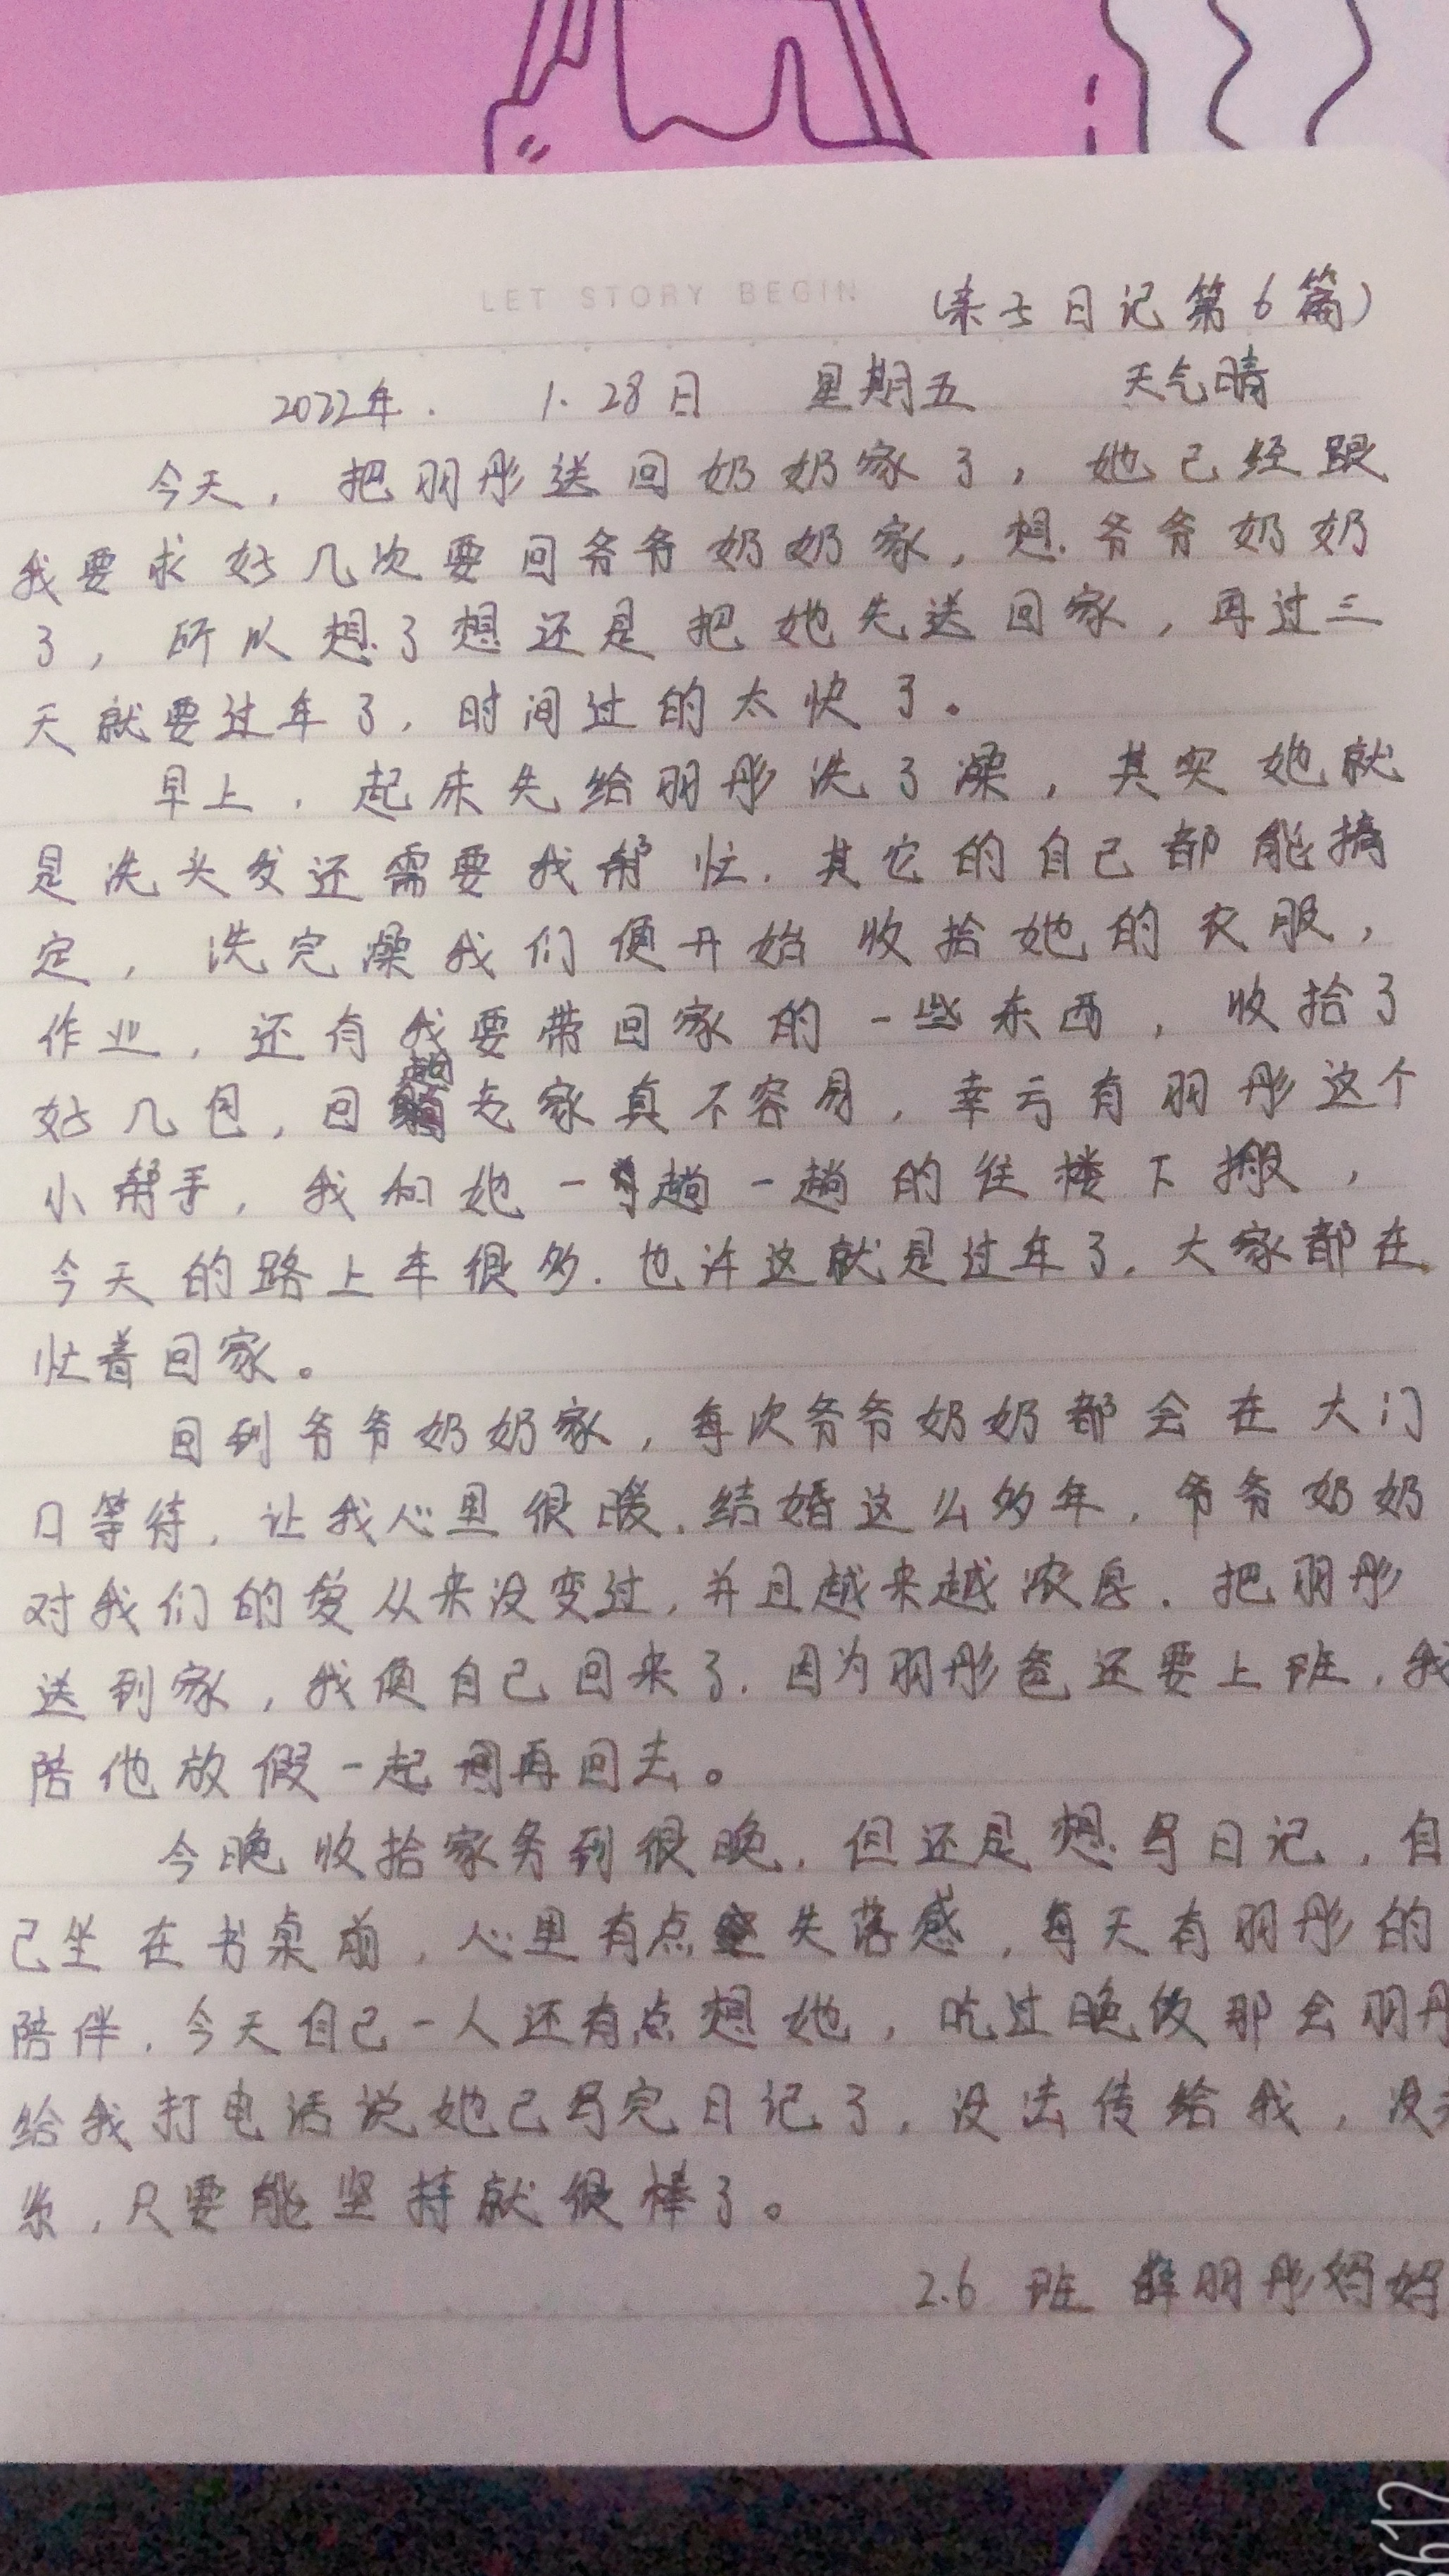 LET STORY BEGIN
(亲子日记第6篇)
2022年. 1.28日 星期五 天气晴
今天,把丽彤送回奶奶家了,她已经跟
我要求好几次要回爷爷奶奶家,想爷爷奶奶
了,所以想了想还是把她先送回家,再过三
天就要过年了,时间过的太快了。
早上,起床先给丽彤洗了澡,其实她就
是洗头发还需要我帮忙.其它的自己都能搞
定,洗完澡我们便开始收拾她的衣服,
作业,还有我要带回家的一些东西,收拾了
好几包,回趟老家真不容易,幸亏有丽彤这个
小帮手,我和她一趟一趟的往楼下搬,
今天的路上车很多.也许这就是过年了.大家都在
忙着回家。
回到爷爷奶奶家,每次爷爷奶奶都会在大门
口等待,让我心里很暖.结婚这么多年,爷爷奶奶
对我们的爱从来没变过,并且越来越浓厚.把丽彤
送到家,我便自己回来了.因为丽彤爸还要上班,我
陪他放假一起再回去。
今晚收拾家务到很晚,但还是想写日记,自
己坐在书桌前,心里有点失落感,每天有丽彤的
陪伴.今天自己一人还有点想她,吃过晚饭那会丽彤
给我打电话说她已写完日记了,没法传给我,没关
系,只要能坚持就很棒了。
2.6 班 薛丽彤妈妈